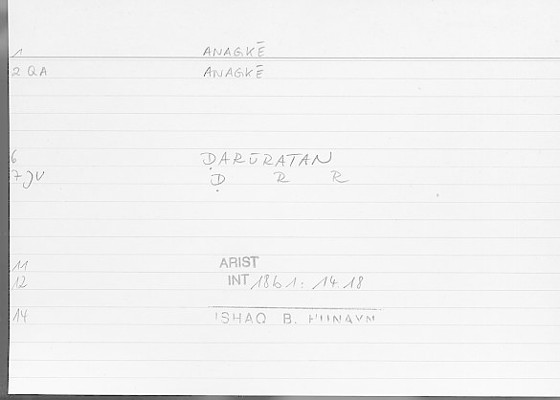 1 ANAGKĒ
2 QA ANAGKĒ
6 ḌARŪRATAN
7 JV Ḍ R R
11 ARIST
12 INT 18b1: 14.18
14 ISHAQ B. HUNAYN